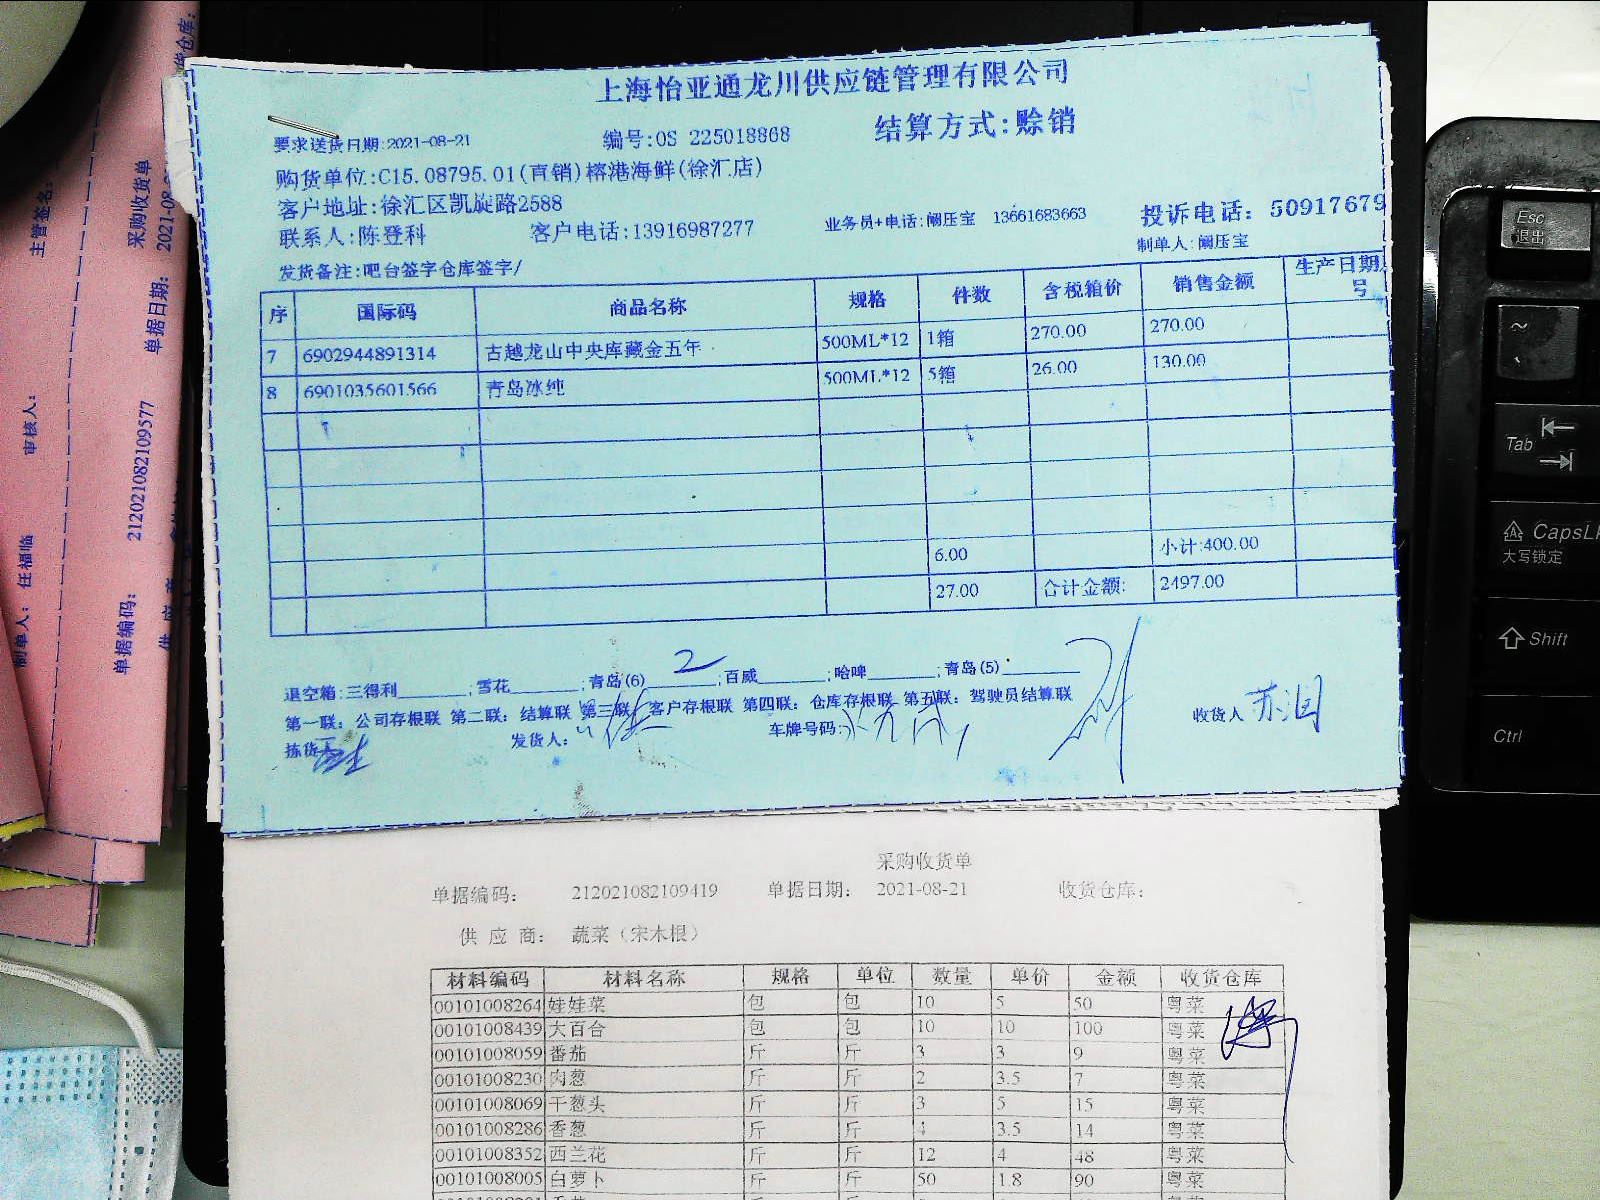 上海怡亚通龙川供应链管理有限公司
要求送货日期:2021-08-21 编号:OS 225018868 结算方式:赊销
购货单位:C15.08795.01(直销)榕港海鲜(徐汇店)
客户地址:徐汇区凯旋路2588
联系人:陈登科 客户电话:13916987277 业务员+电话:阚压宝 13661683663 投诉电话: 50917679
制单人:阚压宝
发货备注:吧台签字仓库签字/
序 国际码 商品名称 规格 件数 含税箱价 销售金额 生产日期 号
7 6902944891314 古越龙山中央库藏金五年 500ML*12 1箱 270.00 270.00
8 6901035601566 青岛冰纯 500ML*12 5箱 26.00 130.00
6.00 小计:400.00
27.00 合计金额: 2497.00
退空箱:三得利_______;雪花_______;青岛(6) 2 ;百威_______;哈啤_______;青岛(5)_______
第一联: 公司存根联 第二联: 结算联 第三联: 客户存根联 第四联: 仓库存根联 第五联: 驾驶员结算联
拣货人 发货人: 车牌号码: 收货人 苏润
采购收货单
单据编码: 212021082109419 单据日期: 2021-08-21 收货仓库:
供 应 商: 蔬菜（宋木根）
材料编码 材料名称 规格 单位 数量 单价 金额 收货仓库
00101008264 娃娃菜 包 包 10 5 50 粤菜
00101008439 大百合 包 包 10 10 100 粤菜
00101008059 番茄 斤 斤 3 3 9 粤菜
00101008230 肉葱 斤 斤 2 3.5 7 粤菜
00101008069 干葱头 斤 斤 3 5 15 粤菜
00101008286 香葱 斤 斤 4 3.5 14 粤菜
00101008352 西兰花 斤 斤 12 4 48 粤菜
00101008005 白萝卜 斤 斤 50 1.8 90 粤菜
采购收货单
单据编码: 212021082109577 单据日期: 2021-08
供 应 商
制单人: 任福临 审核人: 主管签名:
Esc
退出
~
Tab
CapsL
大写锁定
Shift
Ctrl